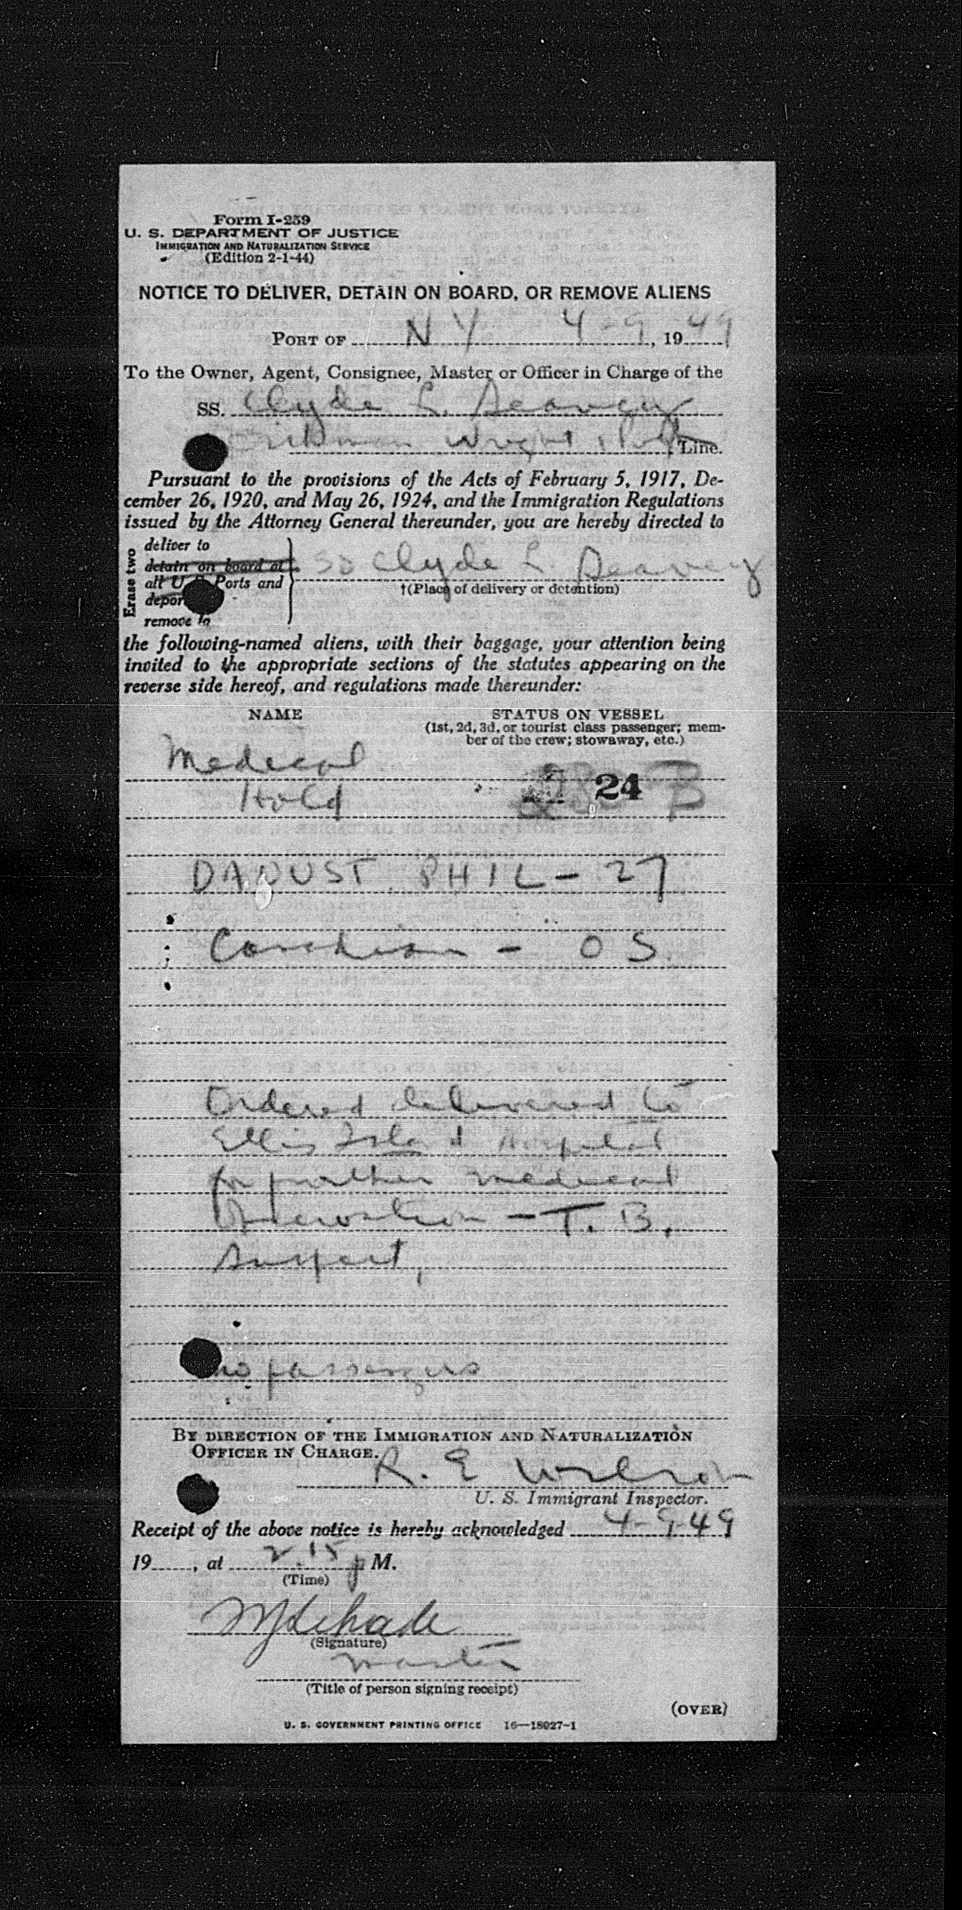 Form I-259
U. S. DEPARTMENT OF JUSTICE
IMMIGRATION AND NATURALIZATION SERVICE
(Edition 2-1-44)
NOTICE TO DELIVER, DETAIN ON BOARD, OR REMOVE ALIENS
PORT OF N Y 4-9, 1949
To the Owner, Agent, Consignee, Master or Officer in Charge of the
SS. Clyde L. Seavey
Wright Line.
Pursuant to the provisions of the Acts of February 5, 1917, De-
cember 26, 1920, and May 26, 1924, and the Immigration Regulations
issued by the Attorney General thereunder, you are hereby directed to
Erase two
deliver to
detain on board at
all U. S. Ports and
deport
remove to
SS Clyde L. Seavey
†(Place of delivery or detention)
the following-named aliens, with their baggage, your attention being
invited to the appropriate sections of the statutes appearing on the
reverse side hereof, and regulations made thereunder:
NAME STATUS ON VESSEL
(1st, 2d, 3d, or tourist class passenger; mem-
ber of the crew; stowaway, etc.)
Medical
Hold 24
DAOUST, PHIL - 27
Canadian - O S.
Ordered delivered to
Ellis Island Hospital
for further medical
Observation - T. B.
Suspect,
no passengers
BY DIRECTION OF THE IMMIGRATION AND NATURALIZATION
OFFICER IN CHARGE.
R. E. Wilson
U. S. Immigrant Inspector.
Receipt of the above notice is hereby acknowledged 4-9-49
19, at 2.15 p M.
(Time)
(Signature)
Master
(Title of person signing receipt)
(OVER)
U. S. GOVERNMENT PRINTING OFFICE 16—18027-1